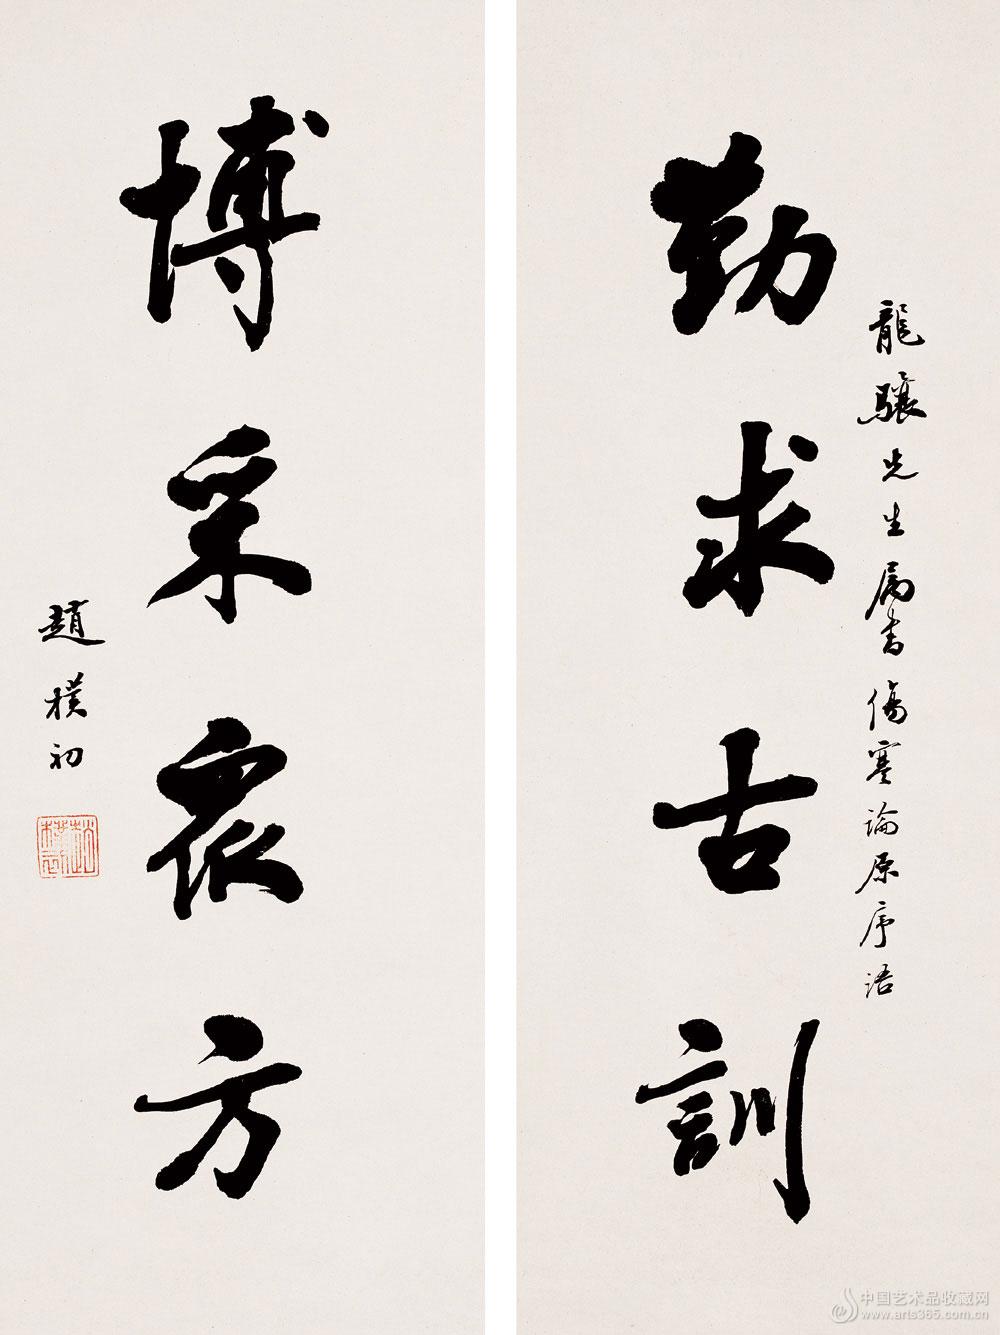 龍驤先生属書傷寒論原序語
勤求古訓
博采衆方
趙樸初
中国艺术品收藏网
www.arts365.com.cn